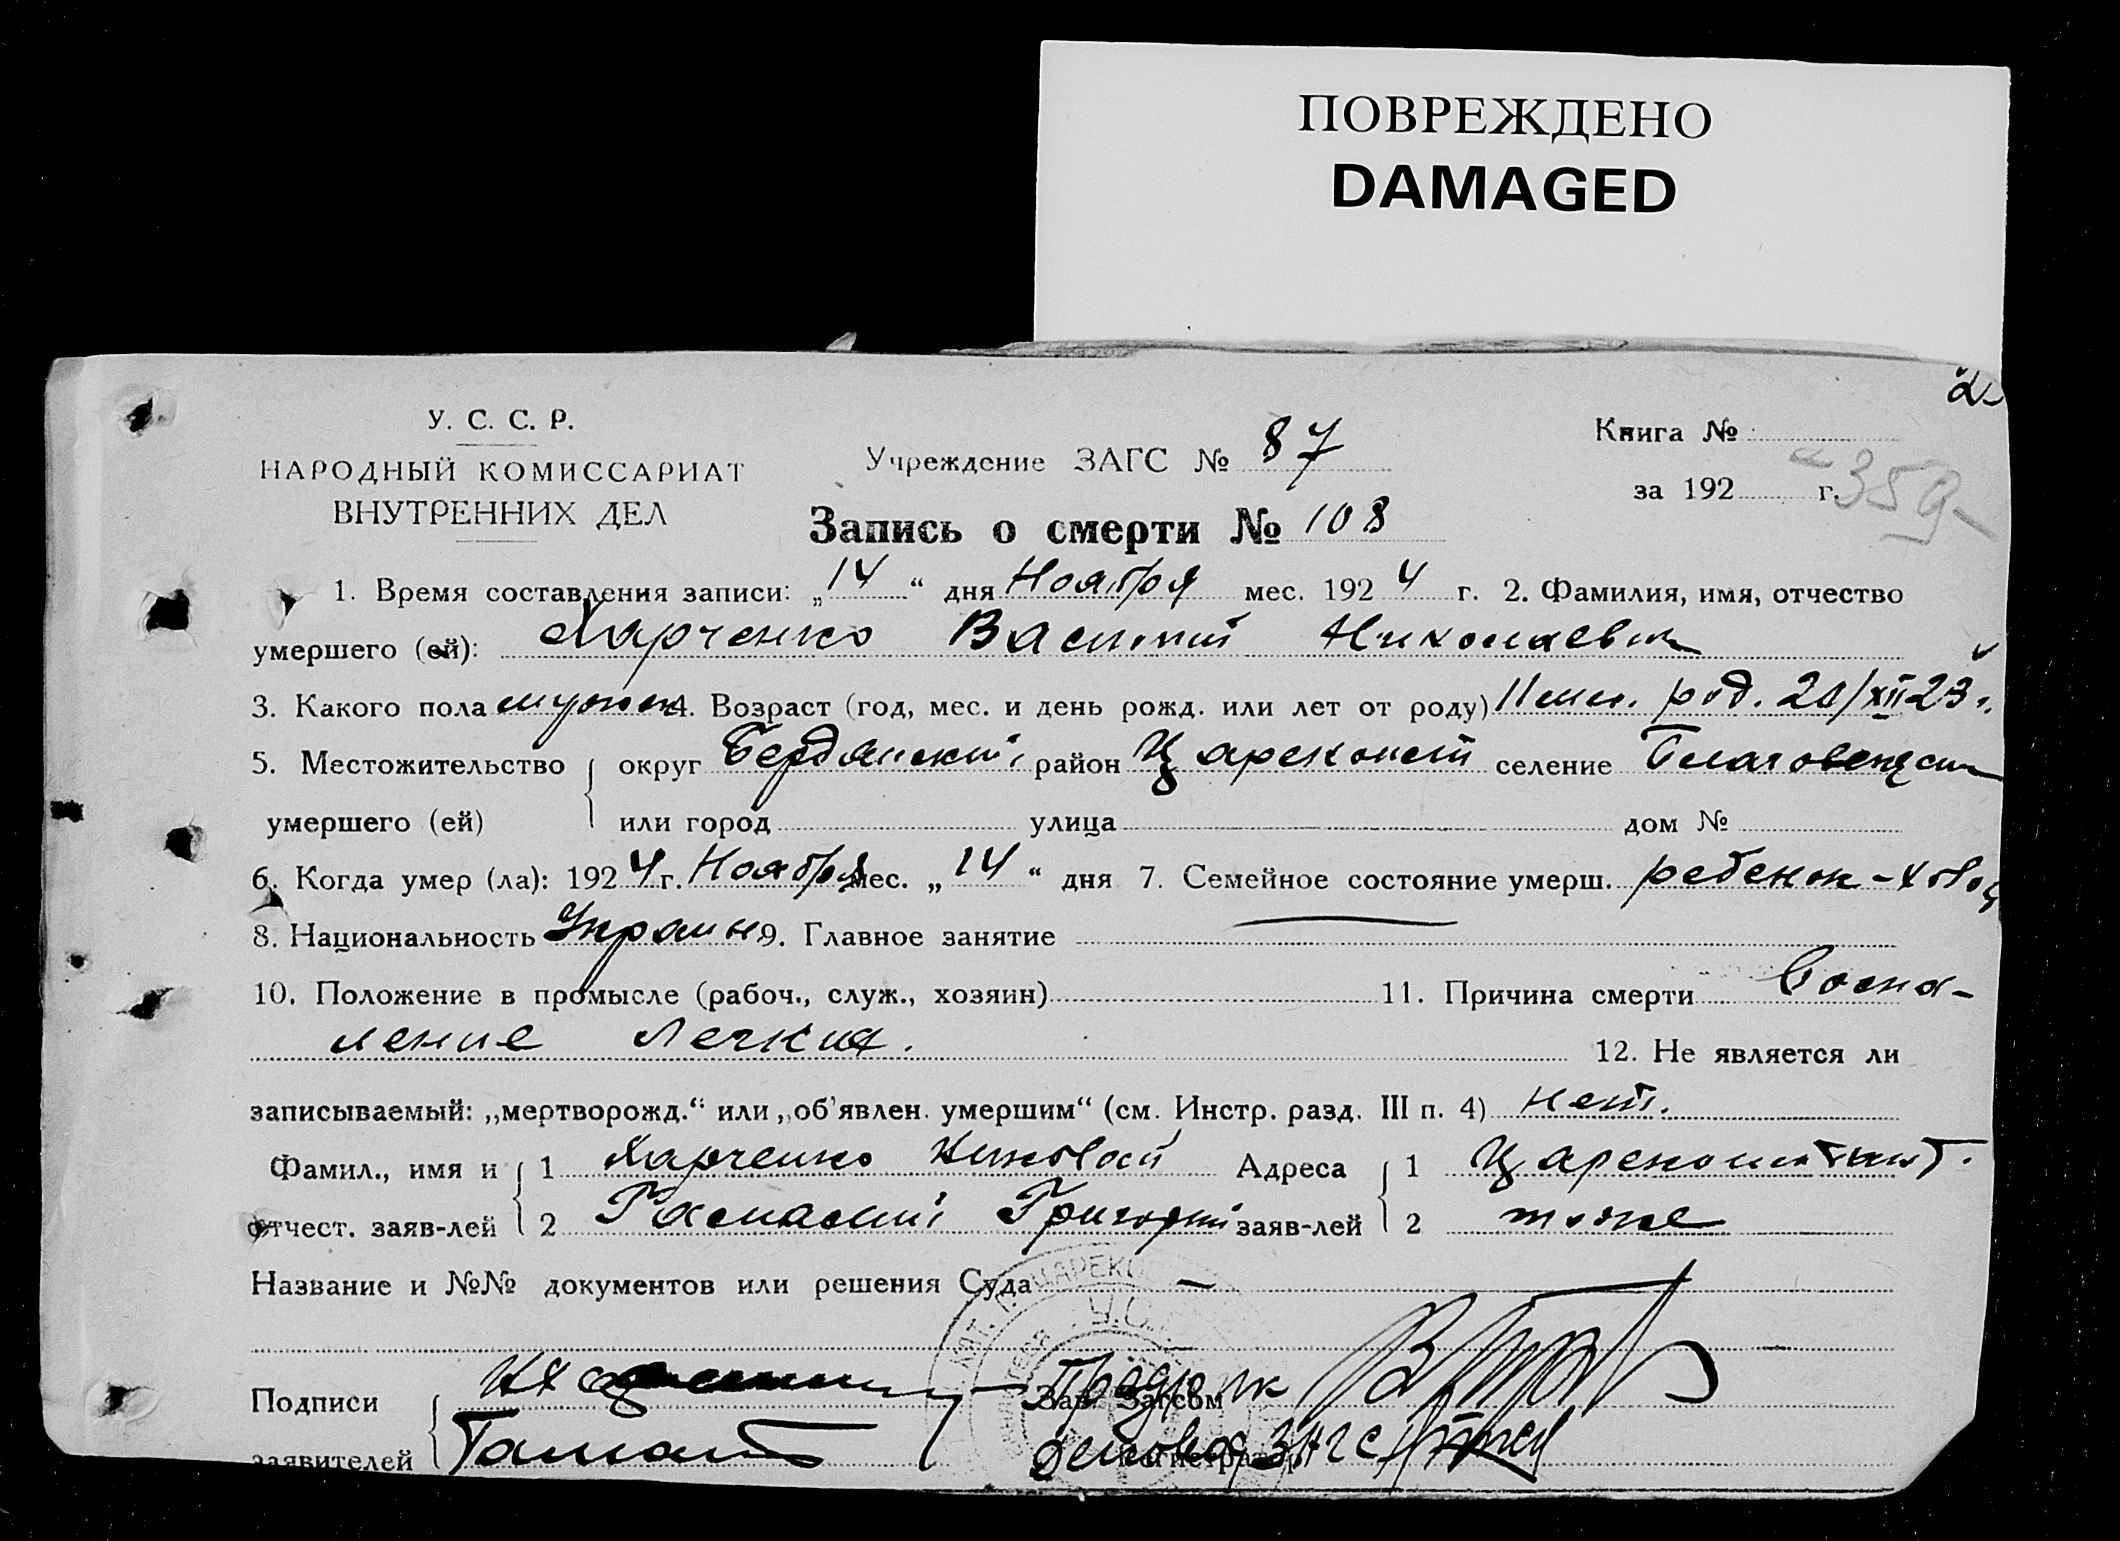 ПОВРЕЖДЕНО
DAMAGED
У. С. С. Р.
НАРОДНЫЙ КОМИССАРИАТ
ВНУТРЕННИХ ДЕЛ
Учреждение ЗАГС № 87
Книга №
за 192 г. 359
Запись о смерти № 108
1. Время составления записи: „14“ дня Ноября мес. 1924 г. 2. Фамилия, имя, отчество
умершего (ей): Харченко Василий Николаевич
3. Какого пола мужск 4. Возраст (год, мес. и день рожд. или лет от роду) 11 мес. род. 20/XII 23 г.
5. Местожительство округ Бердянский район Цареконст селение Благовещенс
умершего (ей) или город улица дом №
6. Когда умер (ла): 1924 г. Ноября мес. „14“ дня 7. Семейное состояние умерш. ребенок - холос
8. Национальность Украин 9. Главное занятие
10. Положение в промысле (рабоч., служ., хозяин) 11. Причина смерти Воспа-
ление легких.
12. Не является ли
записываемый: „мертворожд.“ или „об'явлен. умершим“ (см. Инстр. разд. III п. 4) нет.
Фамил., имя и 1 Харченко Николай Адреса 1 Цареконстант.
отчест. заяв-лей 2 Григорий заяв-лей 2 тоже
Название и №№ документов или решения Суда —
Подписи Зав. Загсом
заявителей ЗАГС